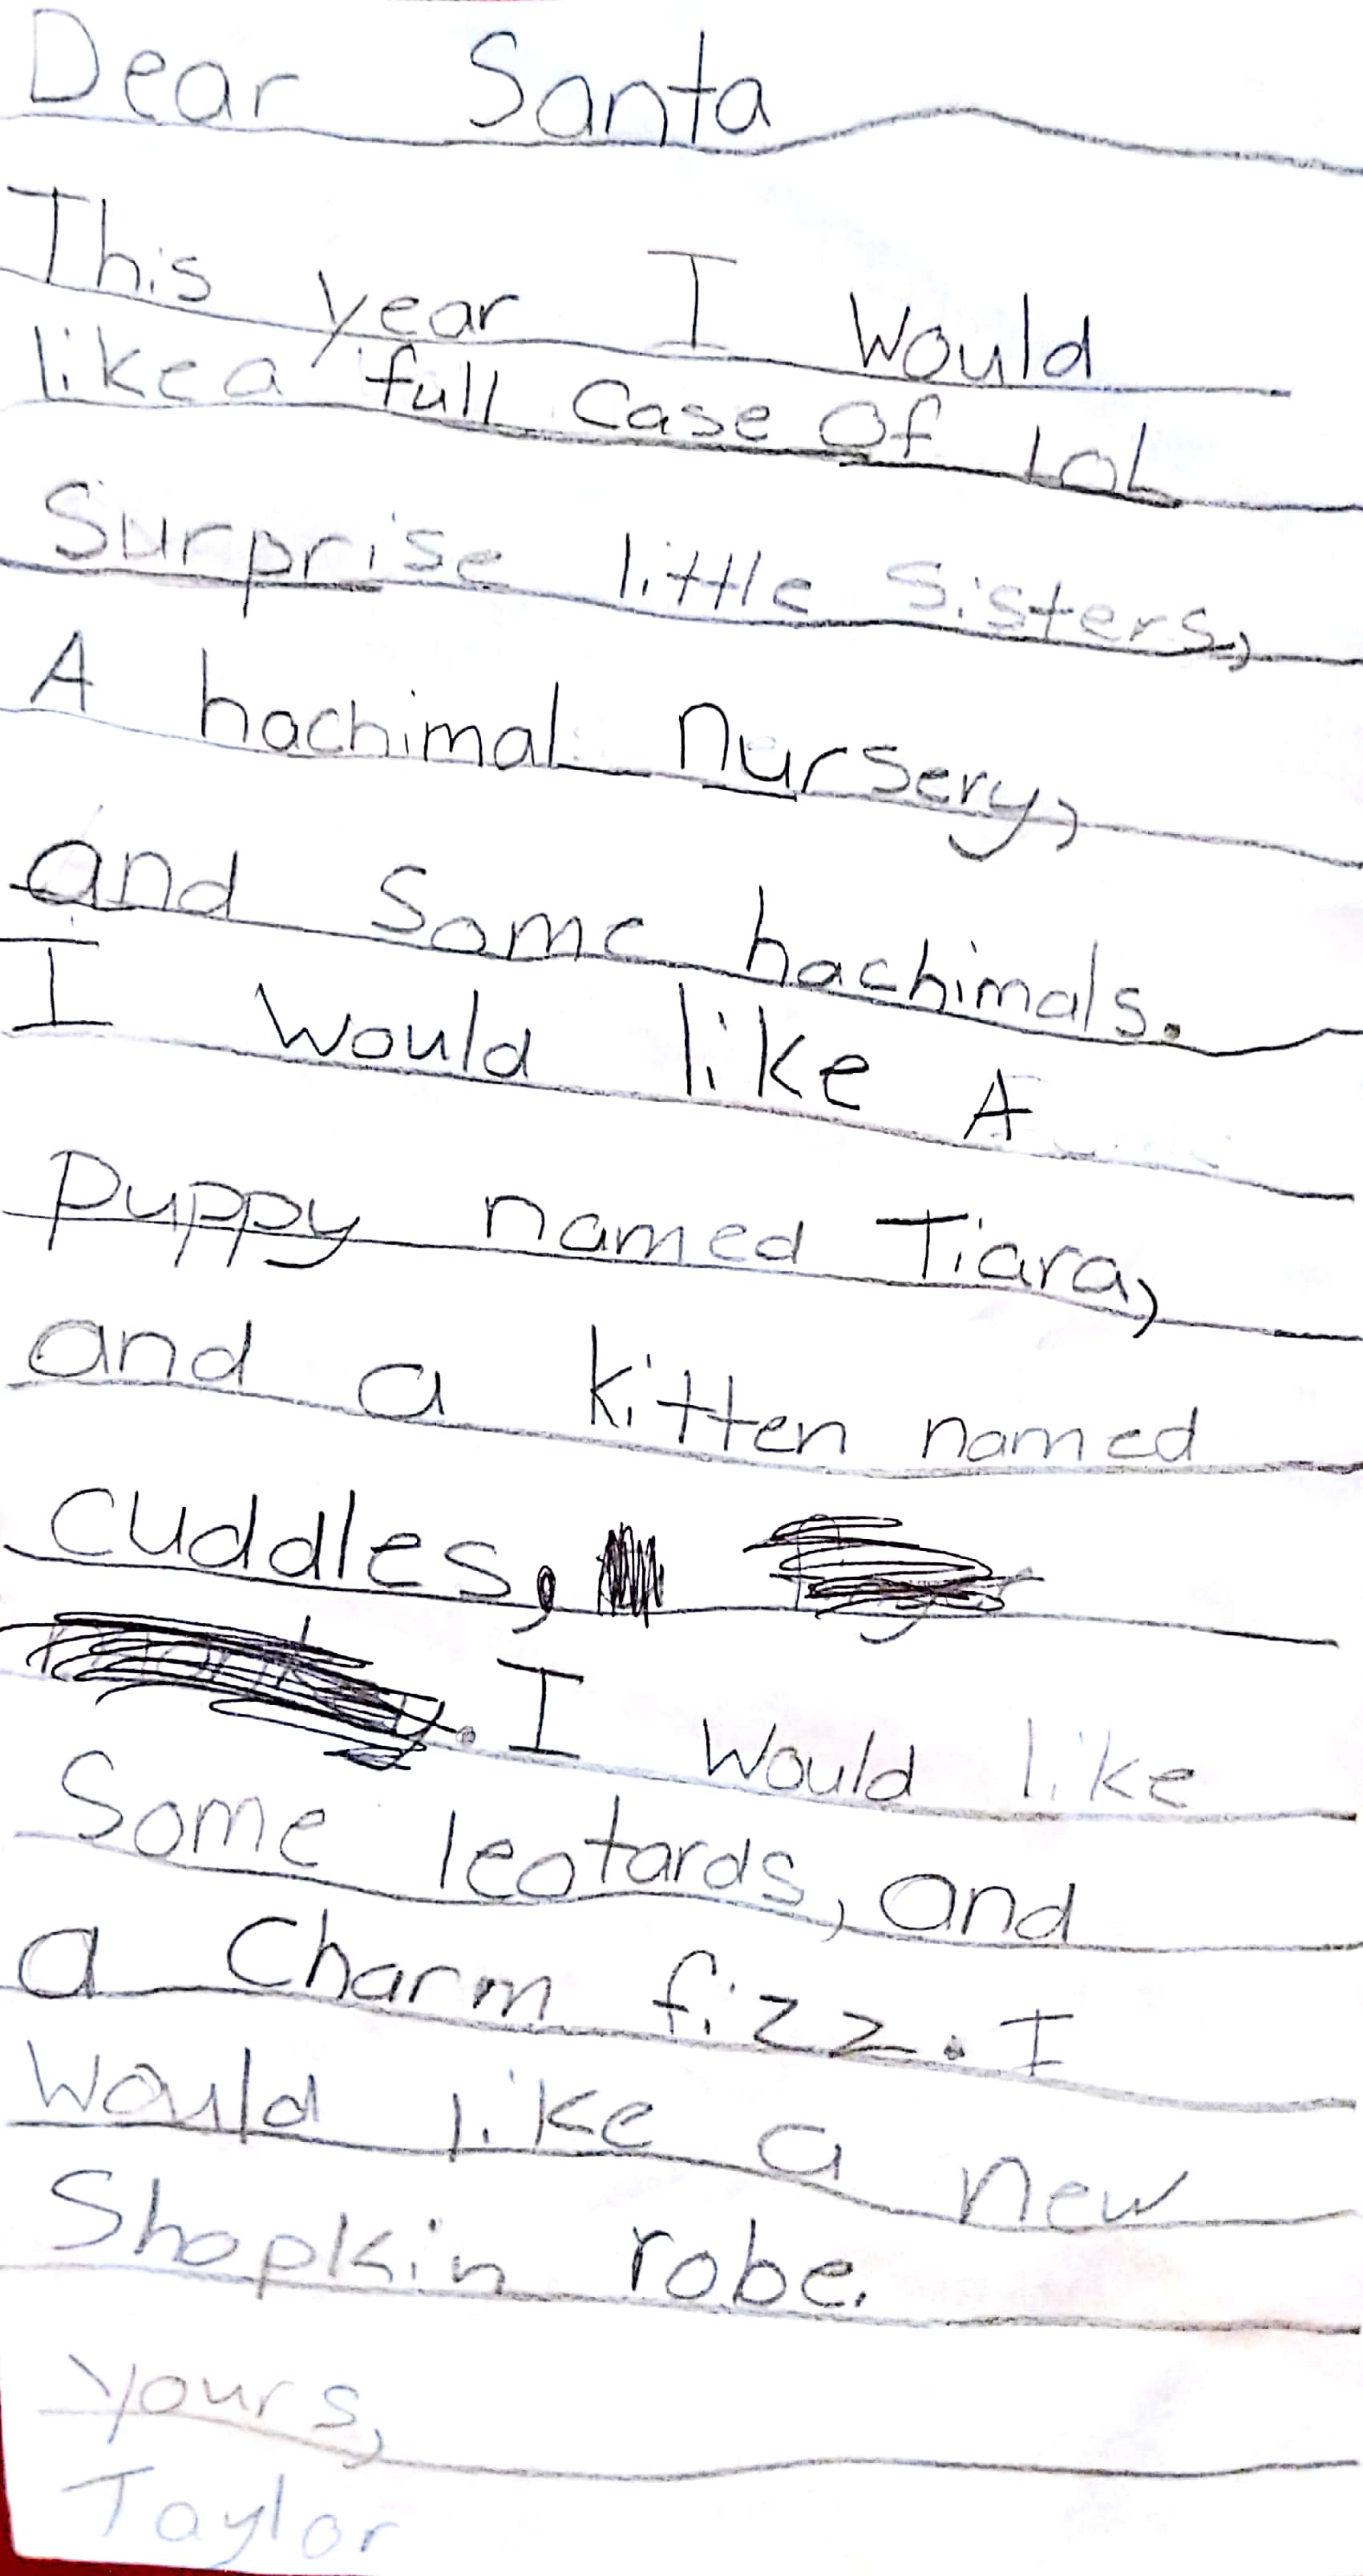 Dear Santa
This year I Would
like a full Case Of LOL
Surprise little Sisters,
A hachimal nursery,
and Some hachimals.
I would like A
puppy named Tiara,
and a kitten named
cuddles,
. I would like
Some leotards, and
a Charm fizz. I
Would like a new
Shopkin robe.
yours,
Taylor